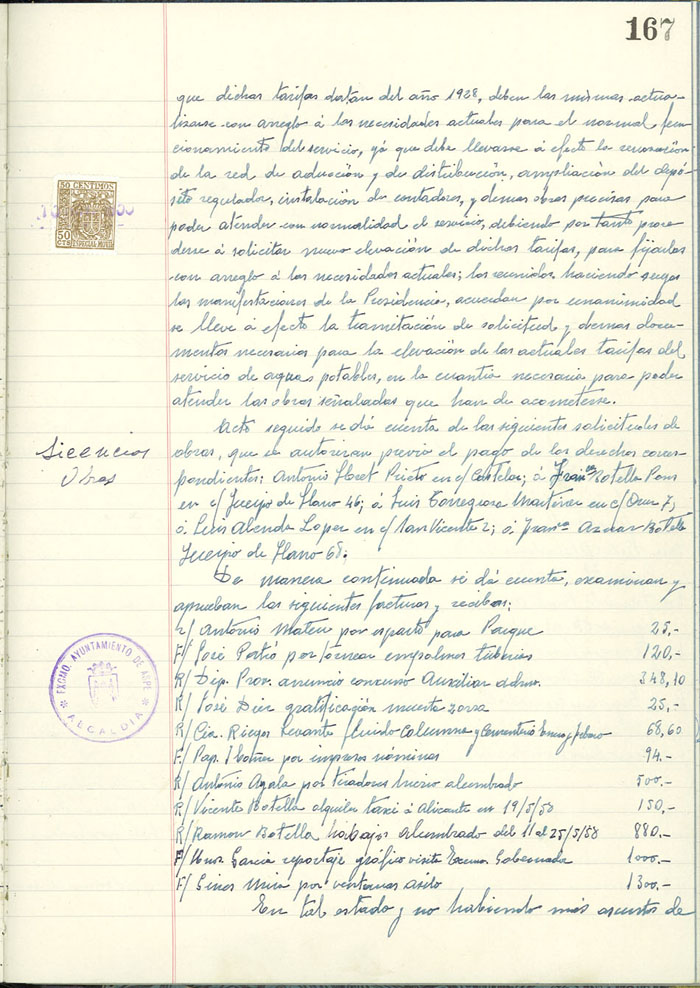 167
que dichas tarifas datan del año 1928, deben las mismas actua-
lizarse con arreglo á las necesidades actuales para el normal fun-
cionamiento del servicio, yá que debe llevarse á efecto la renovación
de la red de aducción y de distribución, ampliación del depó-
sito regulador, instalación de contadores, y demas obras precisas para
poder atender con normalidad el servicio, debiendo por tanto proce
derse á solicitar nueva elevación de dichas tarifas, para fijarlas
con arreglo á las necesidades actuales; los reunidos haciendo suyas
las manifestaciones de la Presidencia, acuerdan por unanimidad
se lleve á efecto la tramitación de solicitud y demas docu-
mentos necesarios para la elevación de las actuales tarifas del
servicio de aguas potables, en la cuantia necesaria para poder
atender las obras señaladas que han de acometerse.
Acto seguido se dá cuenta de las siguientes solicitudes de
obras, que se autorizan previo el pago de los derechos corres-
pondientes: Antonio Lloret Prieto en c/ Castelar; á Franco Botella Pons
en c/ Queipo de Llano 46; á Luis Torregrosa Martinez en c/ Cruz 7;
á Luis Alenda Lopez en c/ San Vicente 2; á Franco Aznar Botella
Queipo de Llano 68;
De manera continuada se dá cuenta, examinan y
aprueban las siguientes facturas y recibos:
r/ Antonio Mateu por esparto para Parque 25,-
F/ José Partió por tornear empalmes tuberias 120,-
R/ Dip. Prov. anuncio concurso Auxiliar admvo. 348,10
R/ José Diez gratificación muerte zorra 25,-
R/ Cia. Riegos Levante fluido Columna y Cementerio Enero y febrero 68,60
F/ Pap. Ibañez por impresos nóminas 94.-
R/ Antonio Ayala por alumbrado 500.-
R/ Vicente Botella alquiler taxi á Alicante en 19/5/58 150,-
R/ Ramon Botella trabajos alumbrado del 11 al 25/5/58 880.-
F/ Garcia reportaje gráfico visita Excmo. Gobernador 1000.-
F/ Gines Mira por ventanas asilo 1300.-
En tal estado y no habiendo más asuntos de
50 CENTIMOS
50
CTS
ESPECIAL MOVIL
Licencias
Obras
EXCMO. AYUNTAMIENTO DE ASPE
ALCALDIA